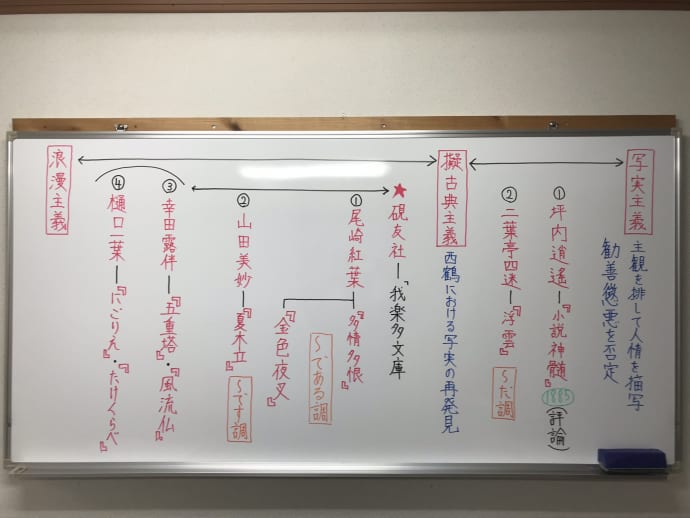 写実主義
主観を排して人情を描写
勧善懲悪を否定
①坪内逍遙ー『小説神髄』1885(評論)
②二葉亭四迷ー『浮雲』
~だ調
擬古典主義
西鶴における写実の再発見
★硯友社ー「我楽多文庫」
①尾崎紅葉
『多情多恨』
『金色夜叉』
~である調
②山田美妙ー『夏木立』
~です調
③幸田露伴ー『五重塔』・『風流仏』
④樋口一葉ー『にごりえ』・『たけくらべ』
浪漫主義